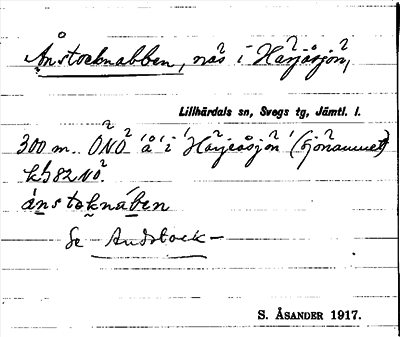 Ånstocknabben, näs i Härjåsjön,
Lillhärdals sn, Svegs tg, Jämtl. l.
300 m. ONO å i Härjeåsjön (sjönamnet)
kb 82 NO.
ánstoknáben
Se Andstock –
S. ÅSANDER 1917.